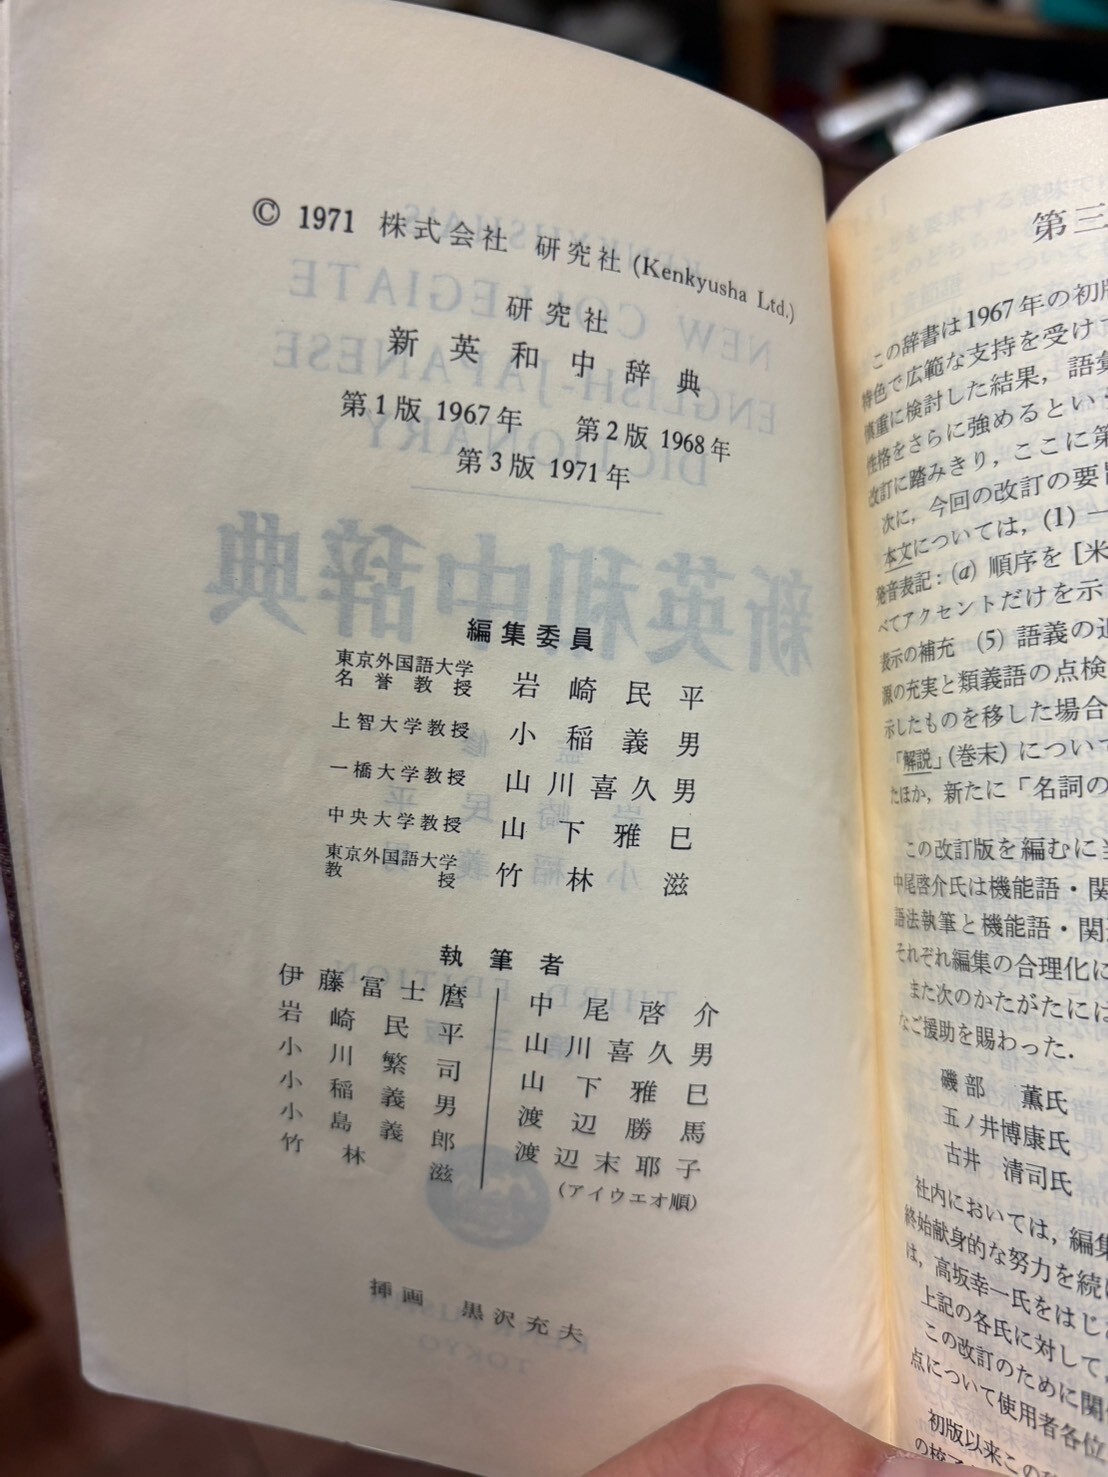 © 1971 株式会社 研究社 (Kenkyusha Ltd.)
研究社
新英和中辞典
第1版 1967年 第2版 1968年
第3版 1971年
編集委員
東京外国語大学名誉教授 岩崎民平
上智大学教授 小稲義男
一橋大学教授 山川喜久男
中央大学教授 山下雅巳
東京外国語大学教授 竹林滋
執筆者
伊藤冨士麿
岩崎民平
小川繁司
小稲義男
小島義郎
竹林滋
中尾啓介
山川喜久男
山下雅巳
渡辺勝馬
渡辺末耶子
(アイウエオ順)
挿画 黒沢充夫
第三
この辞書は1967年の初版
特色で広範な支持を受けて
慎重に検討した結果，語彙
性格をさらに強めるとい
改訂に踏みきり，ここに第
次に，今回の改訂の要旨
本文については，(1) 一
発音表記：(a) 順序を［米
べてアクセントだけを示
表示の補充 (5) 語義の追
源の充実と類義語の点検
示したものを移した場合
「解説」(巻末) について
たほか，新たに「名詞の
この改訂版を編むに当
中尾啓介氏は機能語・関
語法執筆と機能語・関
それぞれ編集の合理化に
また次のかたがたには
なご援助を賜わった．
磯部 薫氏
五ノ井博康氏
古井 清司氏
社内においては，編集
終始献身的な努力を続け
は，高坂幸一氏をはじ
上記の各氏に対して，
この改訂のために関
点について使用者各位
初版以来この